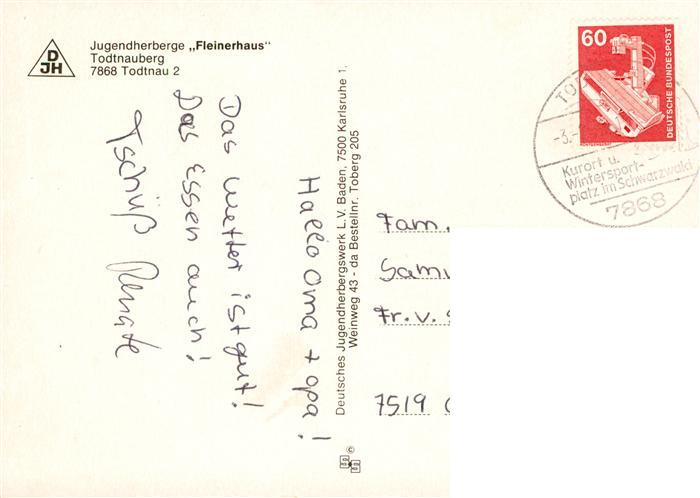 DJH
Jugendherberge „Fleinerhaus"
Todtnauberg
7868 Todtnau 2
Hallo Oma + opa!
Das Wetter ist gut!
Das Essen auch!
Tschüß Renate
Deutsches Jugendherbergswerk L.V. Baden, 7500 Karlsruhe 1,
Weinweg 43 - da Bestellnr. Toberg 205
60
DEUTSCHE BUNDESPOST
RÖNTGENGERÄT
TO
-3.
Kurort u.
Wintersport-
platz im Schwarzwald
7868
Fam.
Samu
Fr. v.
7519